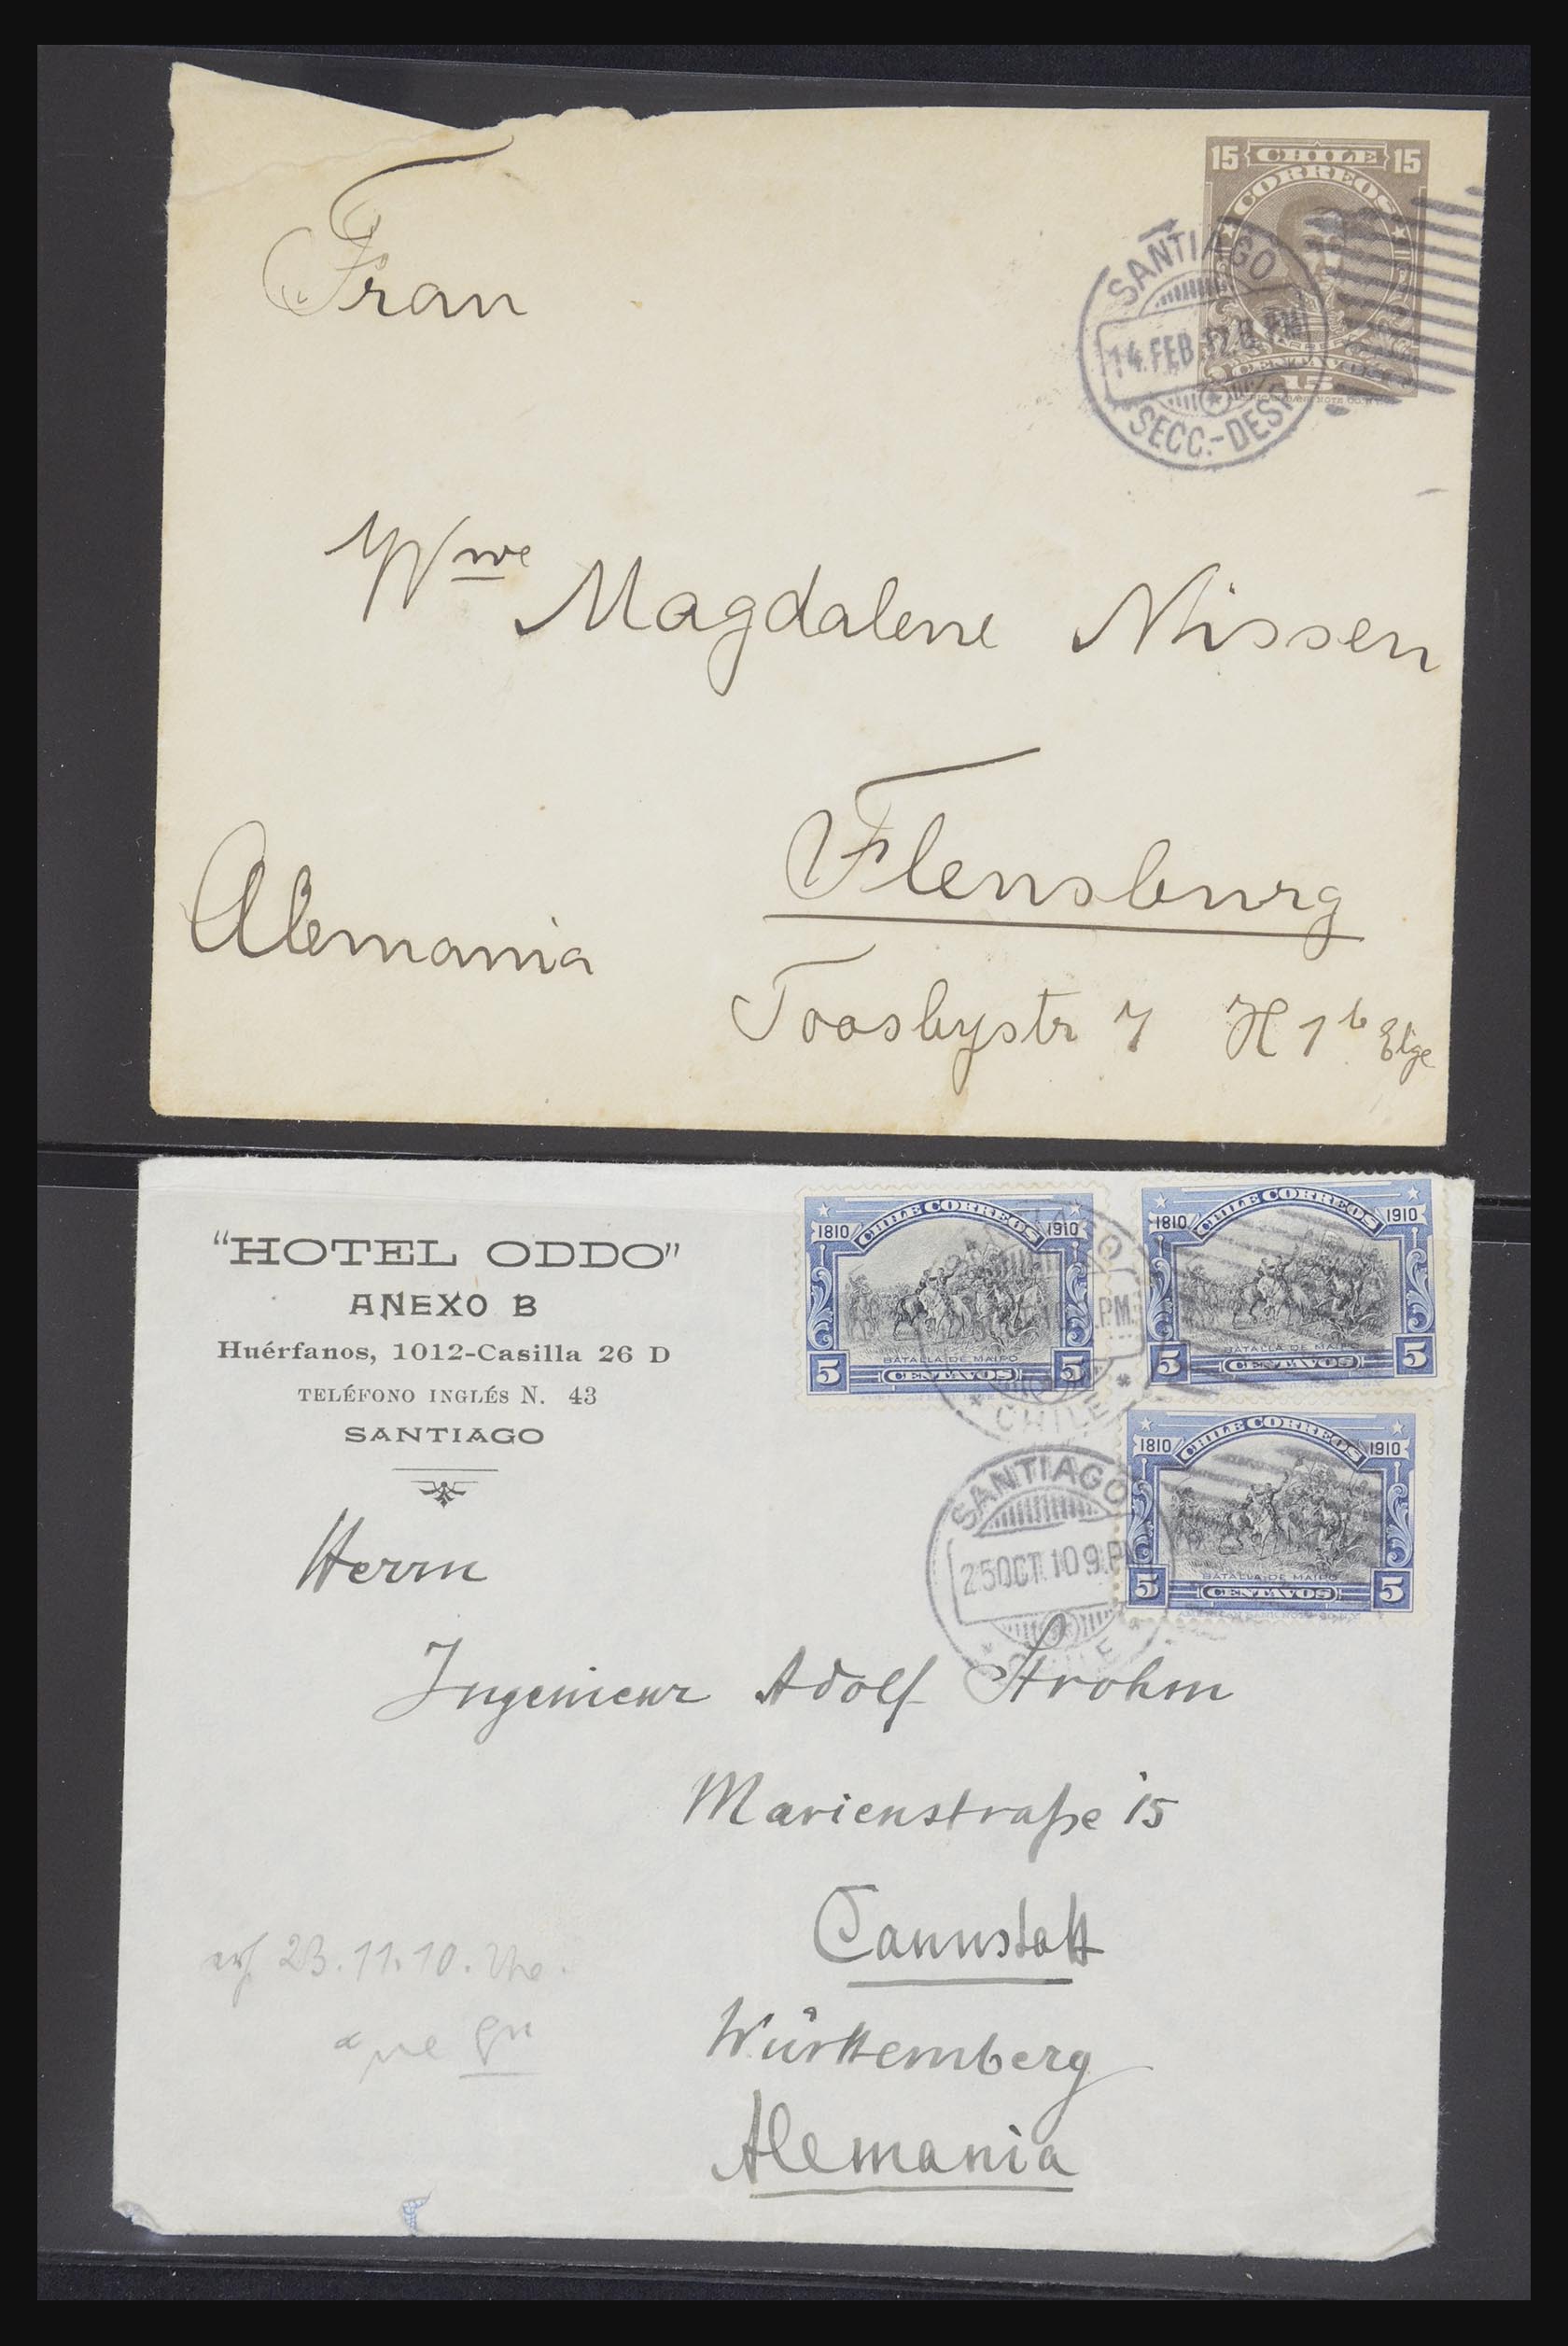 15 CHILE 15
CORREOS
CENTAVOS
15
SANTIAGO
14.FEB.12.8.PM
SECC.-DESP.
Frau
Wwe Magdalene Nissen
Flensburg
Alemania
Toosbystr 7 H 1 b Etge
"HOTEL ODDO"
ANEXO B
Huérfanos, 1012-Casilla 26 D
TELÉFONO INGLÉS N. 43
SANTIAGO
1810 CHILE CORREOS 1910
BATALLA DE MAIPO
5 CENTAVOS 5
1810 CHILE CORREOS 1910
BATALLA DE MAIPO
5 CENTAVOS 5
PM
CHILE
1810 CHILE CORREOS 1910
BATALLA DE MAIPO
5 CENTAVOS 5
SANTIAGO
25 OCT. 10 9.PM
CHILE
Herrn
Ingenieur Adolf Strohm
Marienstraße 15
Cannstatt
Württemberg
Alemania
23.11.10.